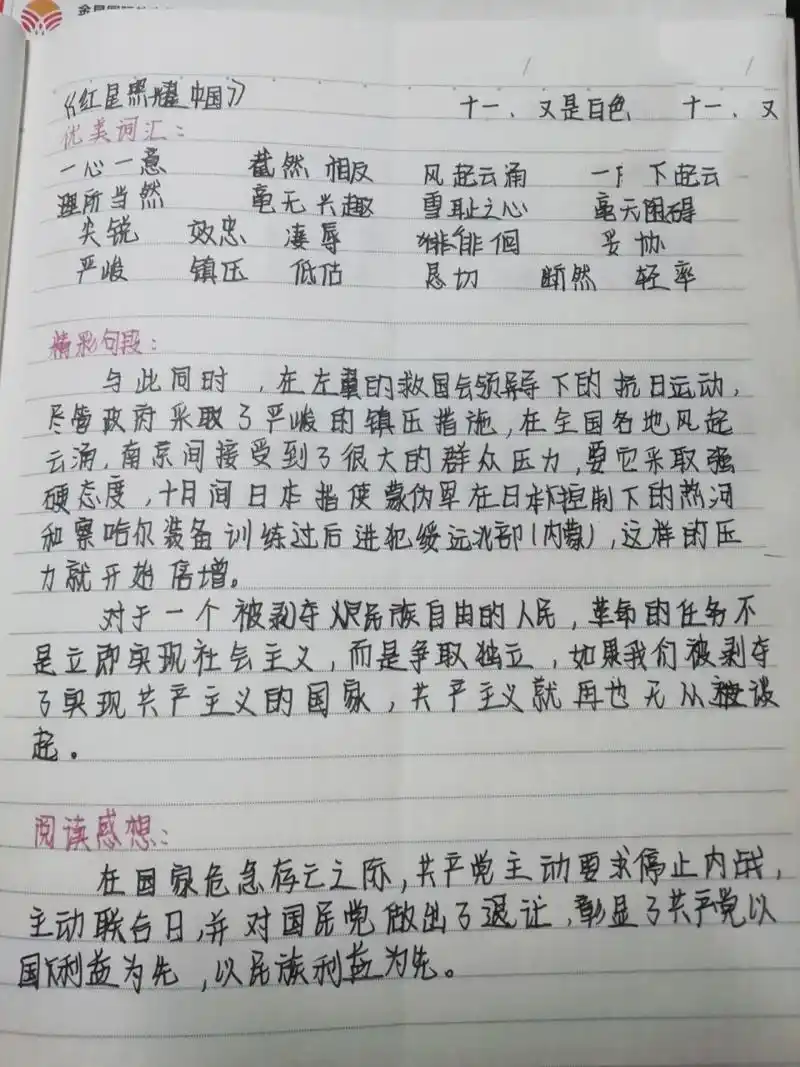 《红星照耀中国》 十一、又是白色 十一、又
优美词汇：
一心一意 截然相反 风起云涌 一 下起云
理所当然 毫无兴趣 雪耻之心 毫无困碍
尖锐 效忠 凌辱 徘徊 妥协
严峻 镇压 低估 恳切 断然 轻率
精彩句段：
与此同时，在左翼的救国会领导下的抗日运动，
尽管政府采取了严峻的镇压措施，在全国各地风起
云涌，南京间接受到了很大的群众压力，要它采取强
硬态度，十月间日本指使蒙伪军在日本控制下的热河
和察哈尔装备训练过后进犯绥远北部（内蒙），这样的压
力就开始倍增。
对于一个被剥夺民族自由的人民，革命的任务不
是立即实现社会主义，而是争取独立，如果我们被剥夺
了实现共产主义的国家，共产主义就再也无从谈
起。
阅读感想：
在国家危急存亡之际，共产党主动要求停止内战，
主动联合日，并对国民党做出了退让，彰显了共产党以
国利益为先，以民族利益为先。